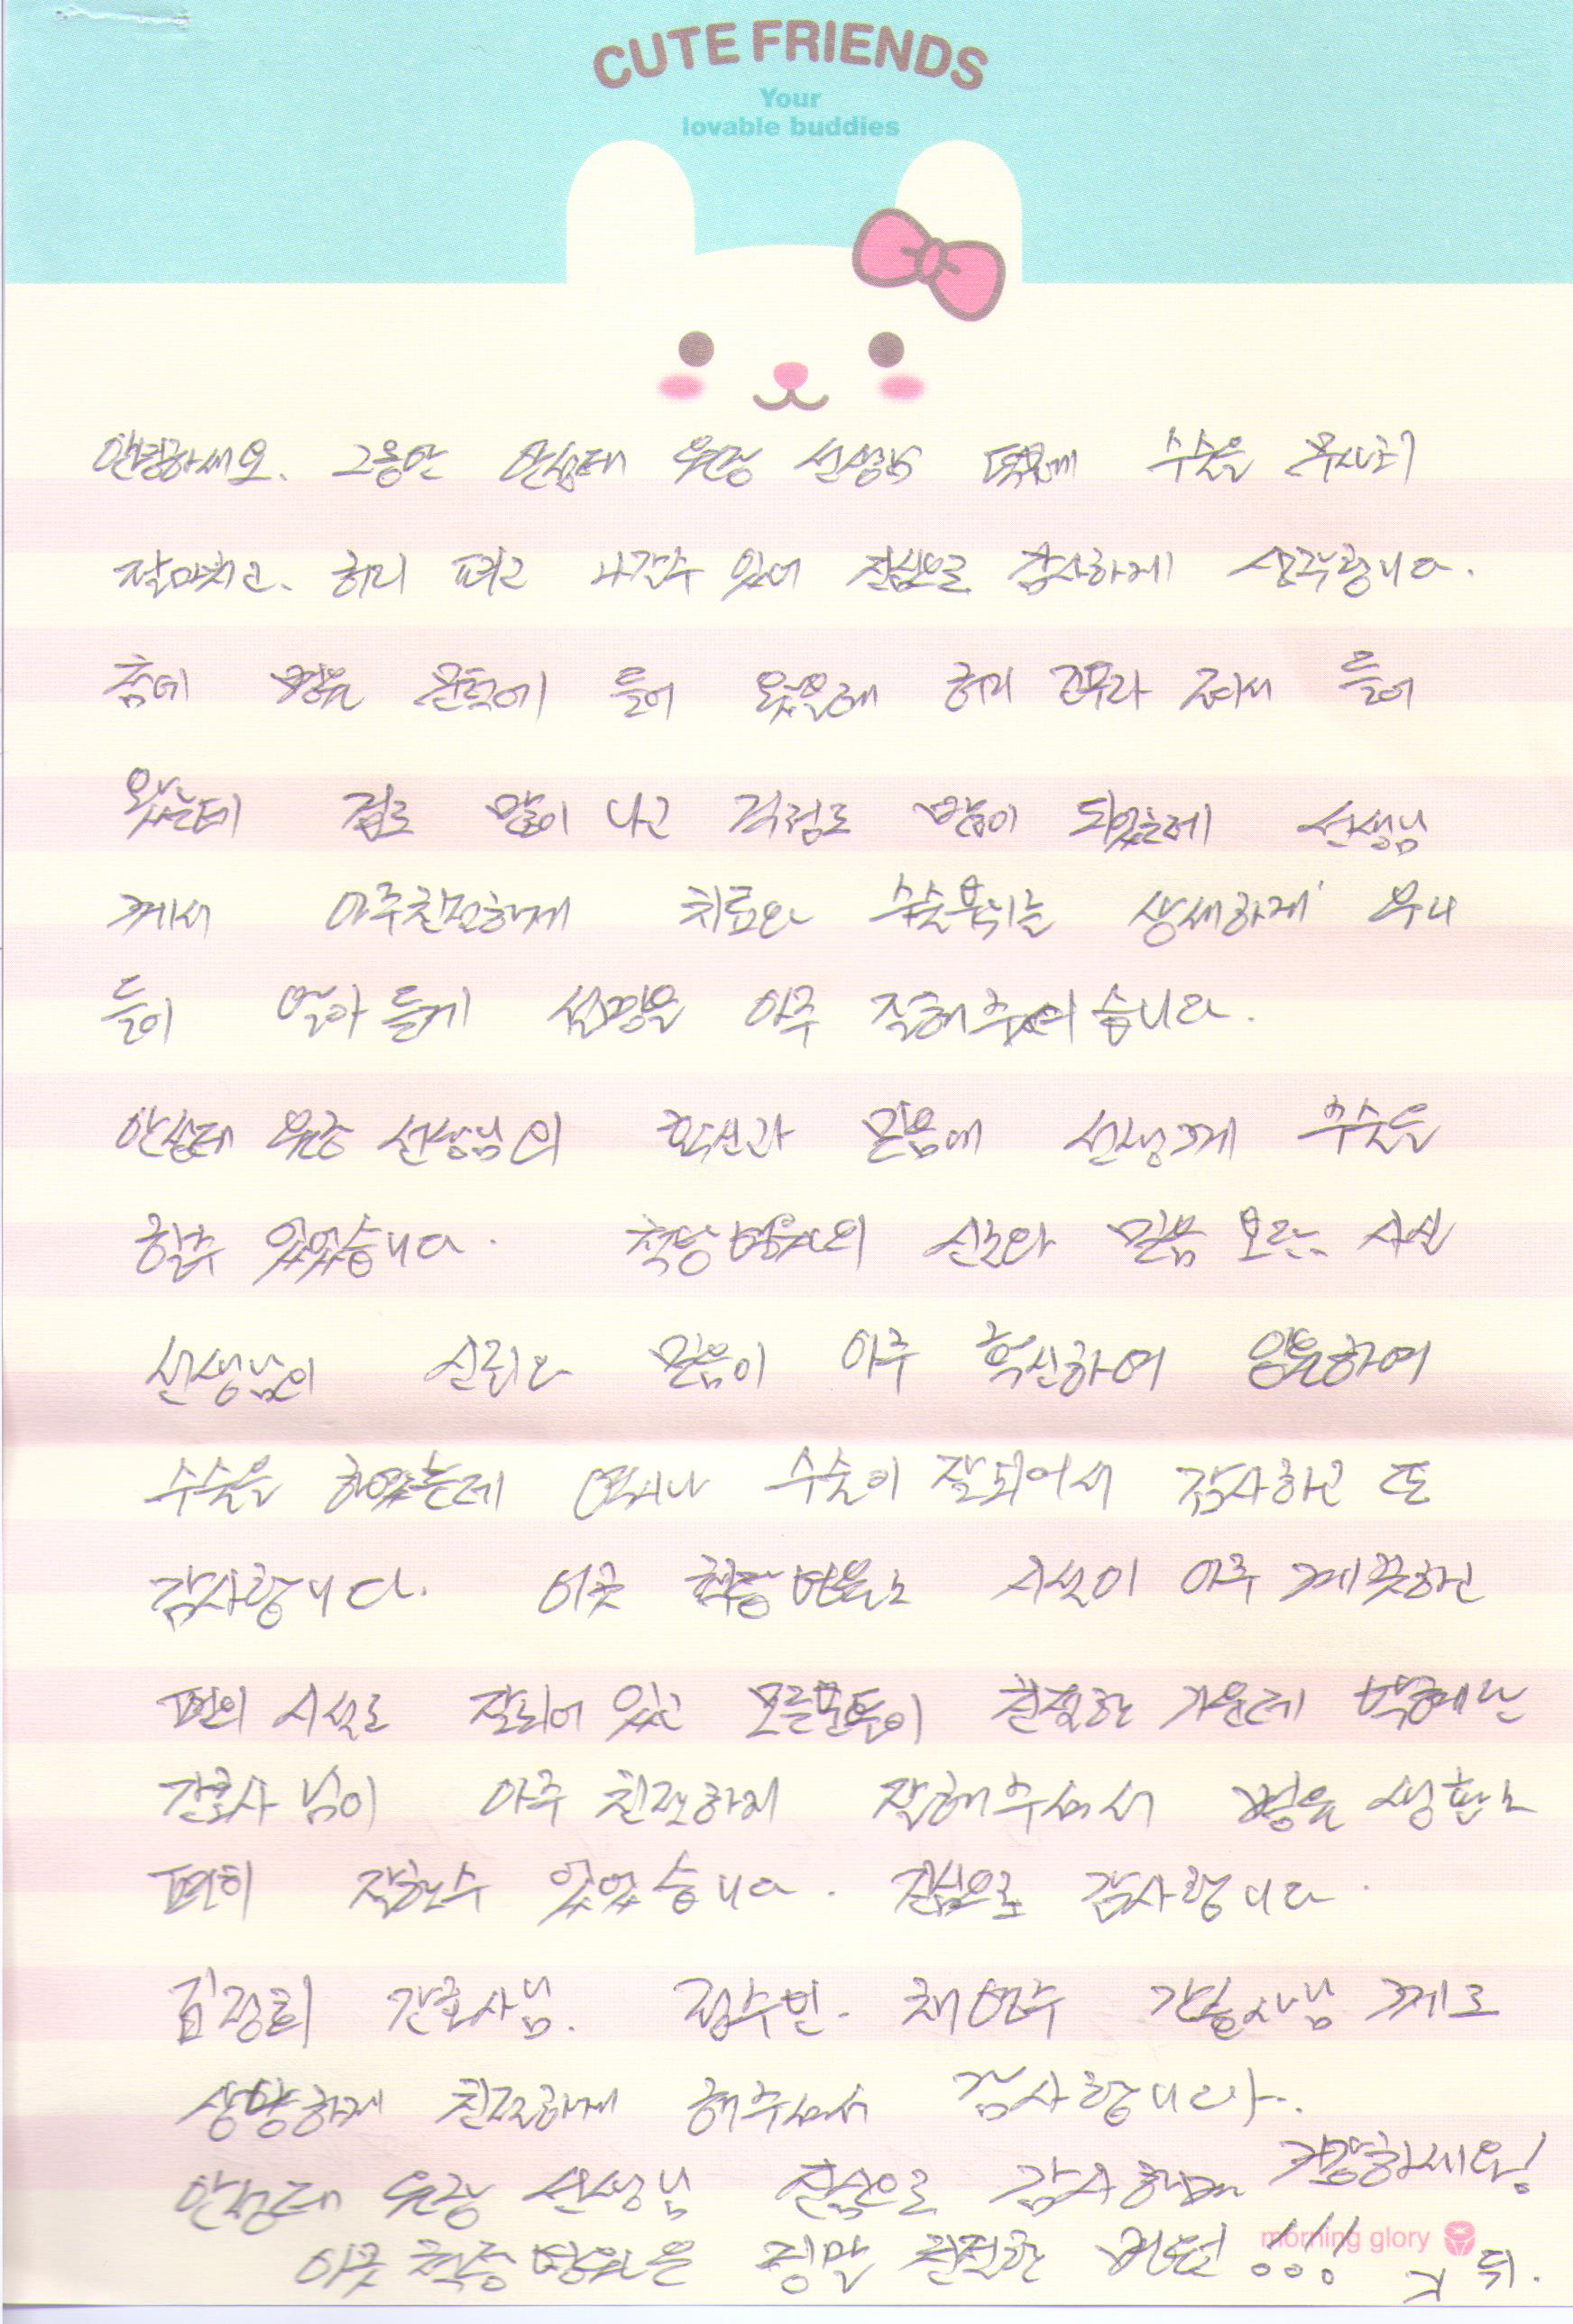 CUTE FRIENDS
Your
lovable buddies
안녕하세요. 그동안 안성태 원장 선생님 덕분에 수술을 무사히
잘마치고. 허리 펴고 나갈수 있어 진심으로 감사하게 생각합니다.
첨에 병원 문턱에 들어 왔을때 허리 구부라 져서 들어
왔는데 겁도 많이 나고 걱정도 많이 되었는데 선생님
께서 아주친절하게 치료와 수술부위는 상세하게 우리
들이 알아 듣게 설명을 아주 잘해주셨습니다.
안성태 원장 선생님의 확신과 믿음에 선생께 수술을
할수 있었습니다. 척탑 병원의 신뢰와 믿음 모든 시설
선생님의 신뢰와 믿음이 아주 확신하여 입원하여
수술을 하였는데 역시나 수술이 잘되어서 감사하고 또
감사합니다. 이곳 병원은 시설이 아주 깨끗하고
편의 시설도 잘되어 있고 모든분들이 친절한 가운데
간호사 님이 아주 친절하게 잘해주셔서 병원 생활도
편히 잘할수 있었습니다. 진심으로 감사합니다.
김정희 간호사님. 정수빈. 채연수 간호사님 께도
상냥하게 친절하게 해주셔서 감사합니다.
안성태 원장 선생님 진심으로 감사해요 건강하세요!
이곳 병원은 정말 친절한 병원!!!
morning glory